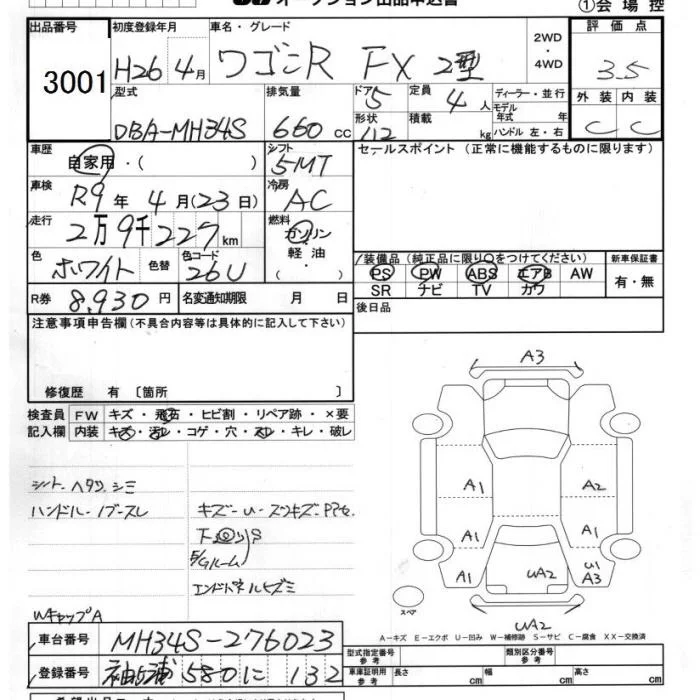 オークション出品申込書 ①会場控
出品番号 初度登録年月 車名・グレード 2WD・4WD 評価点
3001 H26年4月 ワゴンR FX 2型 3.5
型式 排気量 ドア 定員 ディーラー・並行 外装 内装
DBA-MH34S 660cc 5 4人 モデル年式 年 C C
形状 積載 kg ハンドル 左・右
車歴 シフト セールスポイント (正常に機能するものに限ります)
自家用・( ) 5MT
車検 冷房
R9年4月(23日) AC
走行 燃料
2万9千227km ガソリン・軽油・( )
色 色替 色コード
ホワイト 26U
装備品 (純正品に限り○をつけてください) 新車保証書
PS PW ABS エアB AW 有・無
SR ナビ TV カワ
R券 8,930円 名変通知期限 月 日 後日品
注意事項申告欄(不具合内容等は具体的に記入して下さい)
修復歴 有 〔箇所 〕
検査員 FW キズ・飛石・ヒビ割・リペア跡・×要
記入欄 内装 キズ・汚レ・コゲ・穴・スレ・キレ・破レ
シート・ヘタリ、シミ
ハンドル・ノブスレ キズ-U-スリキズ
下回りS
E/Gルーム
WキャップA
A3
A1 A2
A1 A1
A1 UA2 U1 A3
スペア
UA2
A-キズ E-エクボ U-凹み W-補修跡 S-サビ C-腐食 XX-交換済
車台番号 MH34S-276023
登録番号 袖ヶ浦 580 に 132
型式指定番号 参考 類別区分番号 参考
車庫証明用 参考 長さ 幅 高さ cm